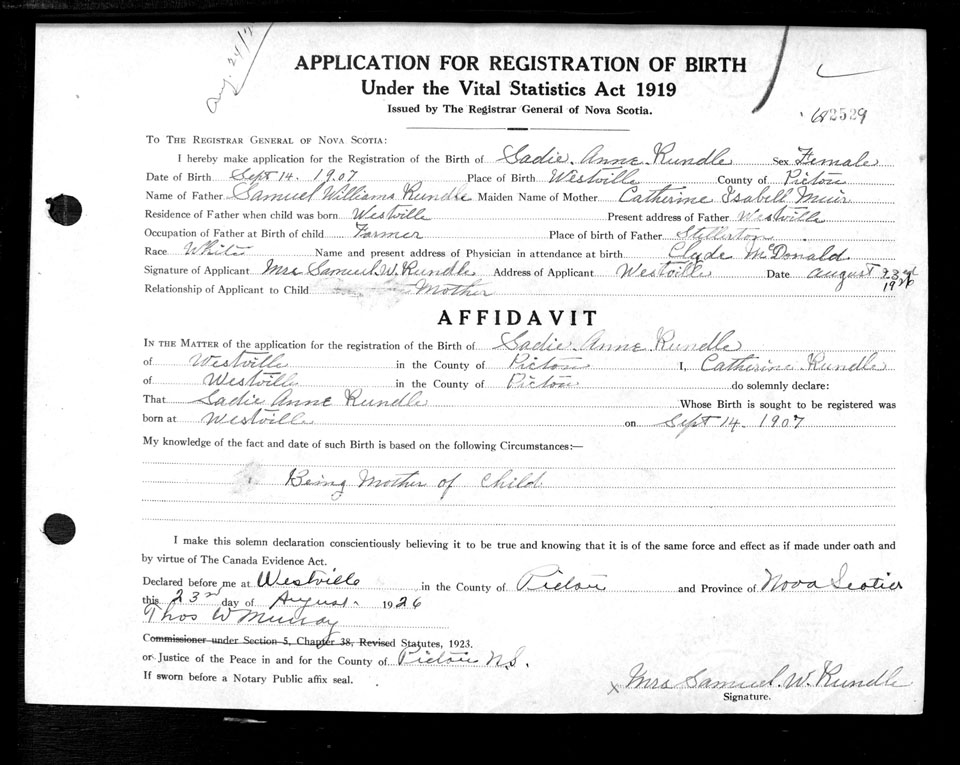 APPLICATION FOR REGISTRATION OF BIRTH
Under the Vital Statistics Act 1919
Issued by The Registrar General of Nova Scotia.
2529
TO THE REGISTRAR GENERAL OF NOVA SCOTIA:
I hereby make application for the Registration of the Birth of Sadie Anne Rundle Sex Female
Date of Birth Sept 14. 1907 Place of Birth Westville County of Pictou
Name of Father Samuel Williams Rundle Maiden Name of Mother Catherine Isabell Muir
Residence of Father when child was born Westville Present address of Father Westville
Occupation of Father at Birth of child Farmer Place of birth of Father Stellerton
Race White Name and present address of Physician in attendance at birth Clyde McDonald
Signature of Applicant Mrs Samuel W. Rundle Address of Applicant Westville Date August 23rd 1926
Relationship of Applicant to Child Mother
AFFIDAVIT
IN THE MATTER of the application for the registration of the Birth of Sadie Anne Rundle
of Westville in the County of Pictou I, Catherine Rundle
of Westville in the County of Pictou do solemnly declare:
That Sadie Anne Rundle Whose Birth is sought to be registered was
born at Westville on Sept 14. 1907
My knowledge of the fact and date of such Birth is based on the following Circumstances:—
Being Mother of Child
I make this solemn declaration conscientiously believing it to be true and knowing that it is of the same force and effect as if made under oath and
by virtue of The Canada Evidence Act.
Declared before me at Westville in the County of Pictou and Province of Nova Scotia
this 23rd day of August 1926
Thos W Murray
Commissioner under Section 5, Chapter 38, Revised Statutes, 1923.
or Justice of the Peace in and for the County of Pictou N.S.
If sworn before a Notary Public affix seal.
x Mrs Samuel W. Rundle
Signature.